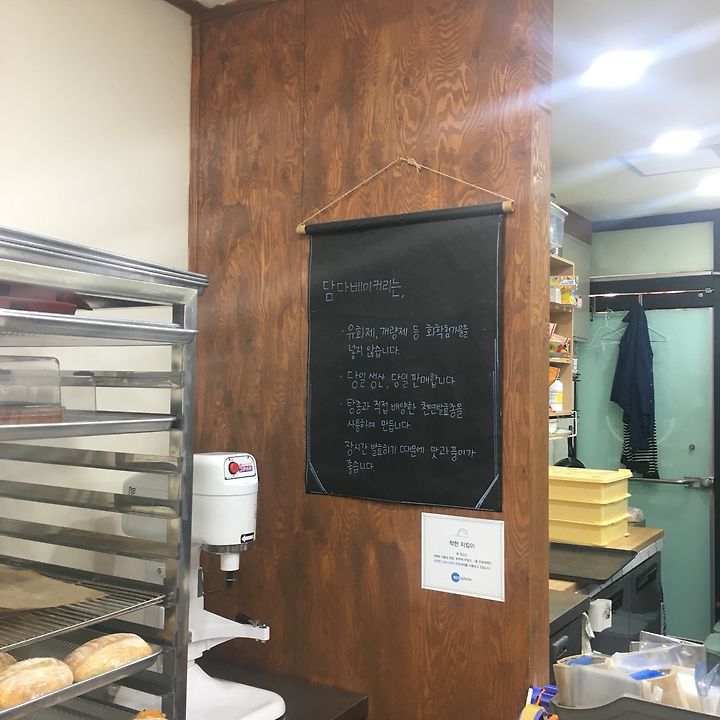 담다베이커리는,
· 유화제, 개량제 등 화학첨가물을
넣지 않습니다.
· 당일 생산, 당일 판매합니다
· 탕종과 직접 배양한 천연발효종을
사용하여 만듭니다.
장시간 발효하기 때문에 맛과 풍미가
좋습니다.
착한 지킴이